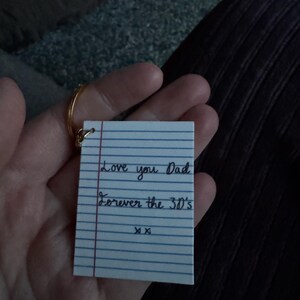 Love you Dad
Forever the 3D's
xx